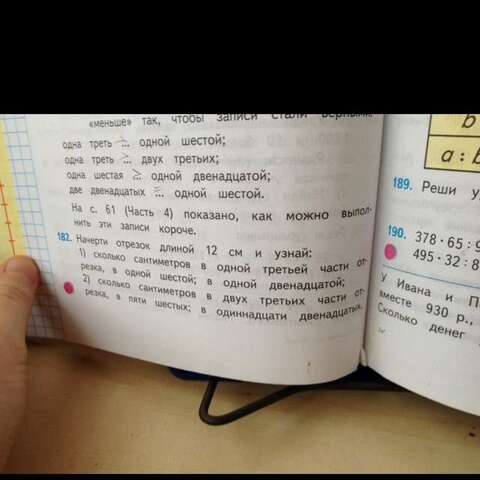 «меньше» так, чтобы записи стали верными:
одна треть > одной шестой;
одна треть > двух третьих;
одна шестая > одной двенадцатой;
две двенадцатых = одной шестой.
На с. 61 (Часть 4) показано, как можно выпол-
нить эти записи короче.
182. Начерти отрезок длиной 12 см и узнай:
1) сколько сантиметров в одной третьей части от-
резка, в одной шестой; в одной двенадцатой;
2) сколько сантиметров в двух третьих части от-
резка, в пяти шестых; в одиннадцати двенадцатых.
b
a : b
189. Реши
190. 378 · 65 :
495 · 32 : 8
У Ивана и П
вместе 930 р.,
Сколько денег